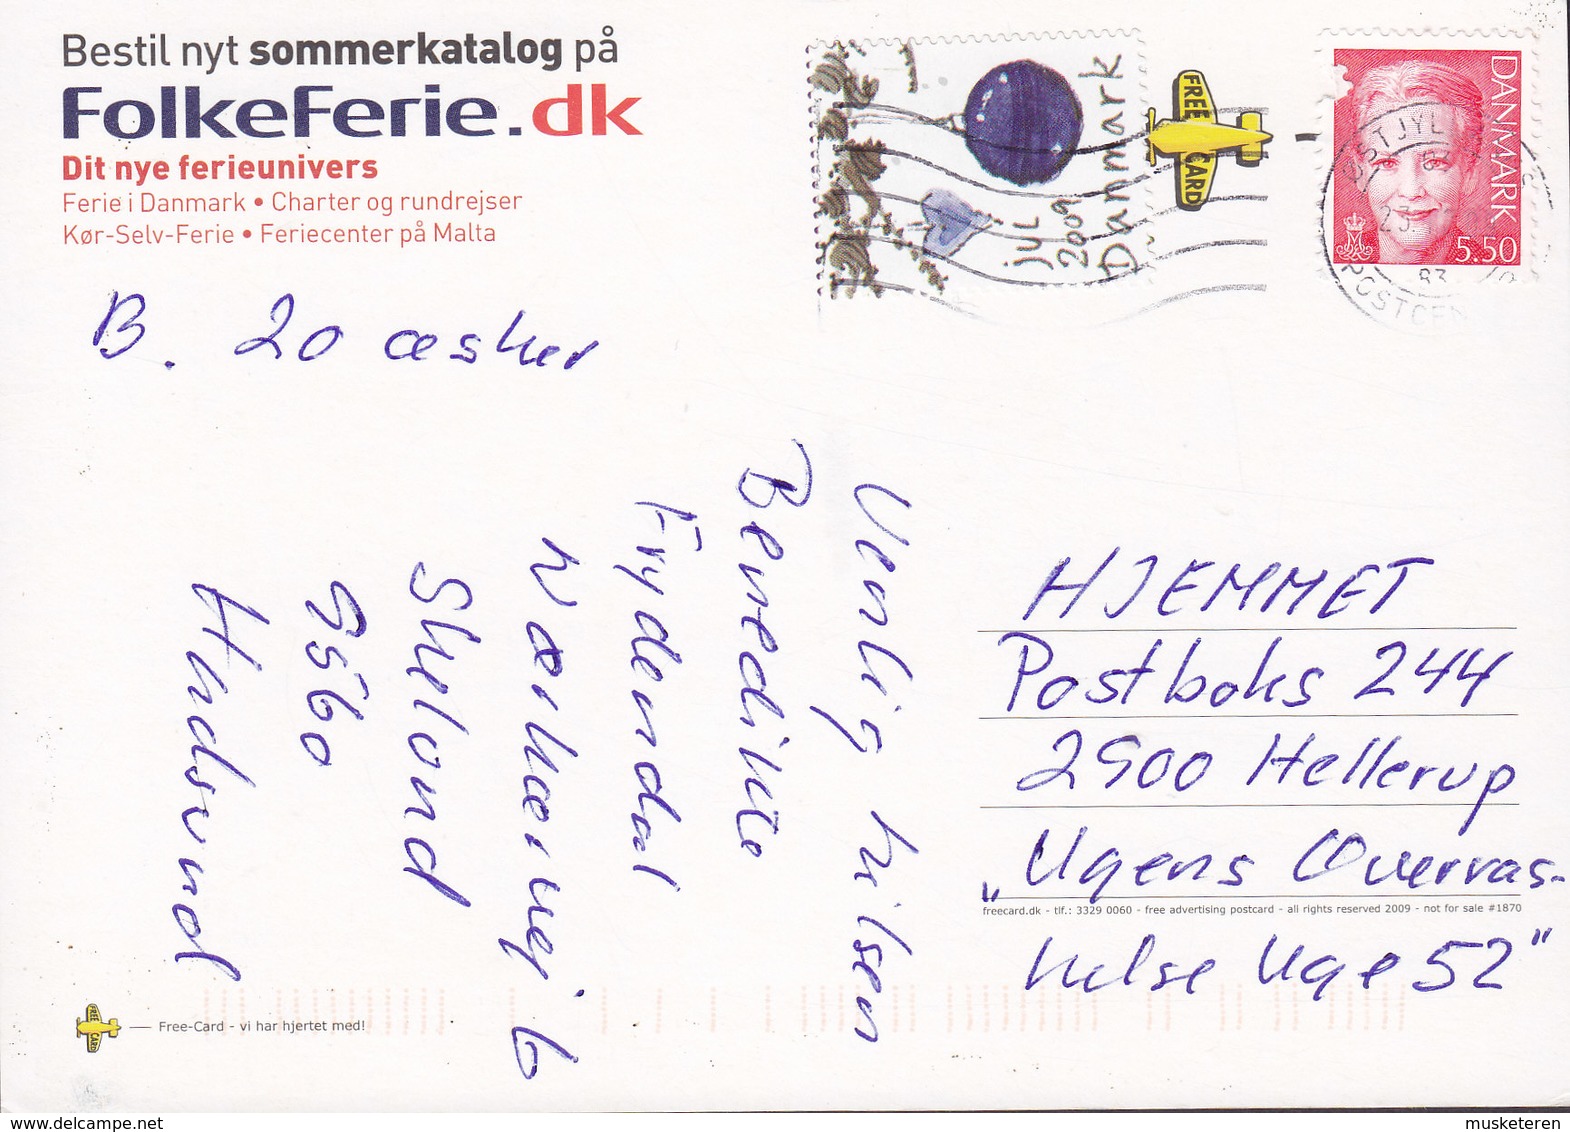 Bestil nyt sommerkatalog på
FolkeFerie.dk
Dit nye ferieunivers
Ferie i Danmark • Charter og rundrejser
Kør-Selv-Ferie • Feriecenter på Malta
jul
2009
Danmark
FREE CARD
DANMARK
5.50
B. 20 æsker
Venlig hilsen
Benedikte
Frydendal
Nørkærvej 6
Skelund
9560
Hadsund
HJEMMET
Postboks 244
2900 Hellerup
"Ugens Overras-
freecard.dk - tlf.: 3329 0060 - free advertising postcard - all rights reserved 2009 - not for sale #1870
kelse Uge 52"
FREE CARD
Free-Card - vi har hjertet med!
delcampe.net
musketeren